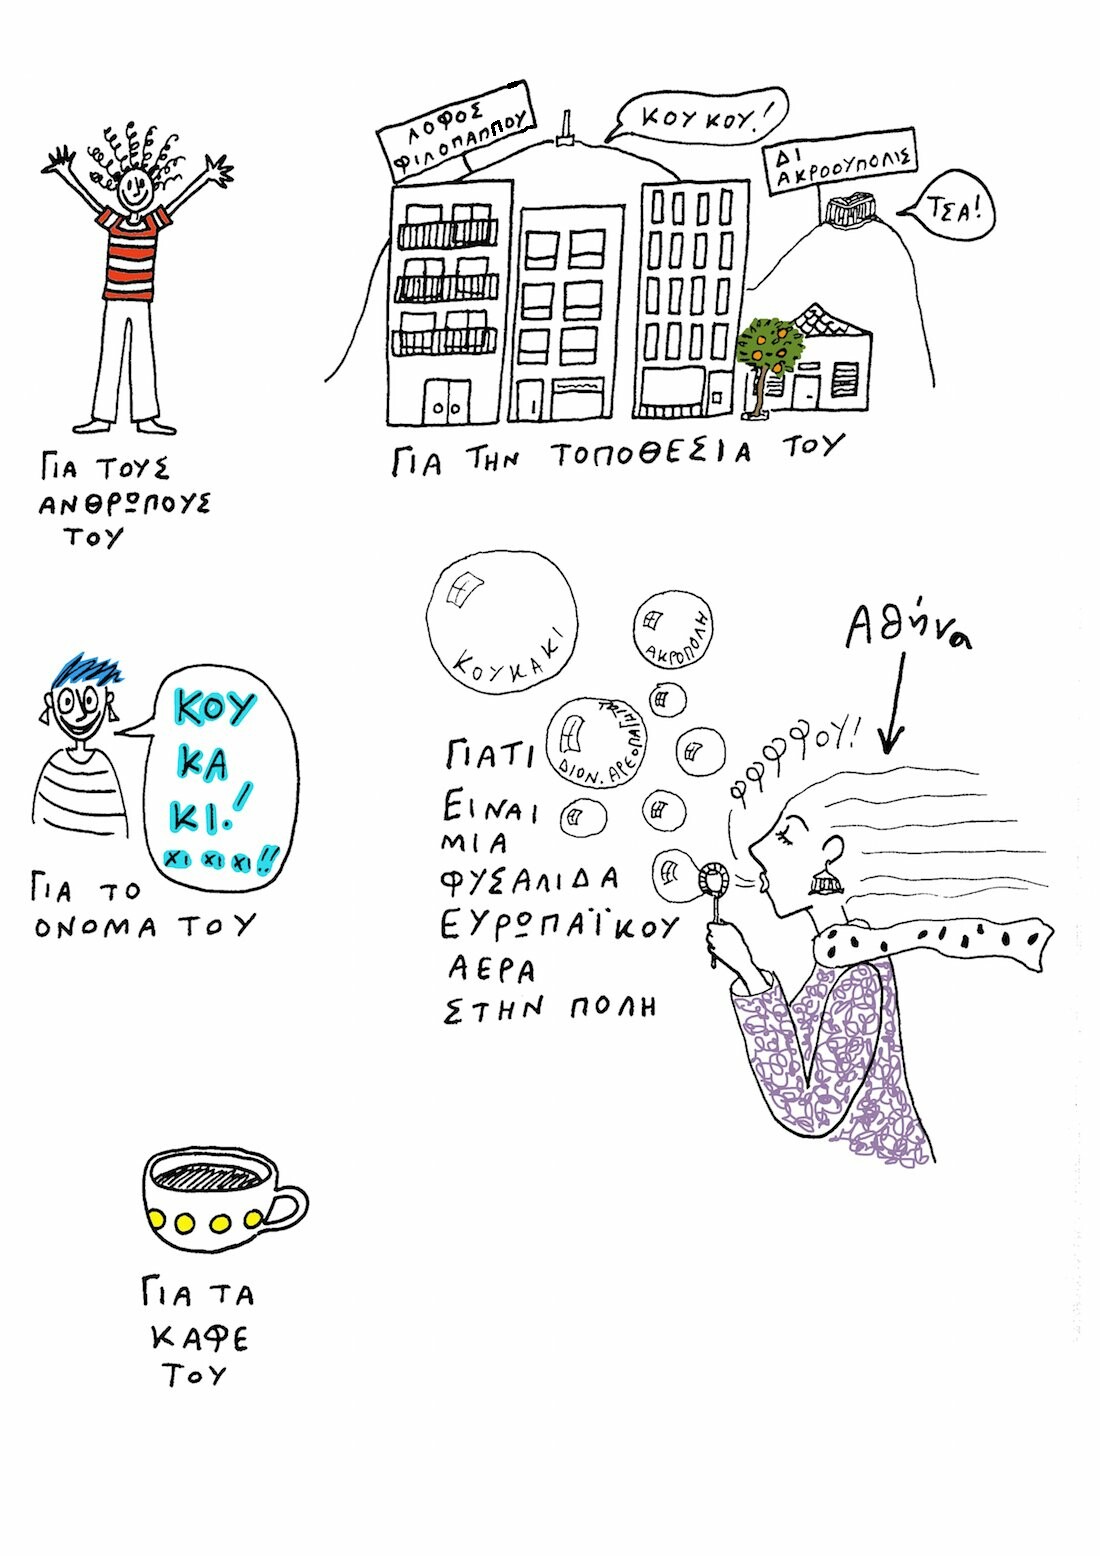 ΛΟΦΟΣ
ΦΙΛΟΠΑΠΠΟΥ
ΚΟΥΚΟΥ!
ΔΙ
ΑΚΡΟΟΥΠΟΛΙΣ
ΤΣΑ!
ΓΙΑ ΤΟΥΣ
ΑΝΘΡΩΠΟΥΣ
ΤΟΥ
ΓΙΑ ΤΗΝ ΤΟΠΟΘΕΣΙΑ ΤΟΥ
ΚΟΥ
ΚΑ
ΚΙ!
ΧΙ ΧΙ ΧΙ!!
ΓΙΑ ΤΟ
ΟΝΟΜΑ ΤΟΥ
ΚΟΥΚΑΚΙ
ΑΚΡΟΠΟΛΗ
ΔΙΟΝ. ΑΡΕΟΠΑΓΙΤΟΥ
Αθήνα
ΦΦΦΦΟΥ!
ΓΙΑΤΙ
ΕΙΝΑΙ
ΜΙΑ
ΦΥΣΑΛΙΔΑ
ΕΥΡΩΠΑΪΚΟΥ
ΑΕΡΑ
ΣΤΗΝ ΠΟΛΗ
ΓΙΑ ΤΑ
ΚΑΦΕ
ΤΟΥ